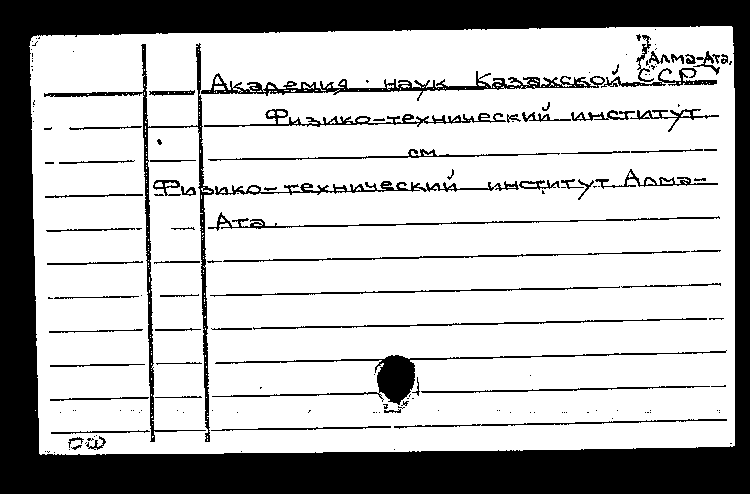 Алма-Ата.
Академия наук Казахской ССР
Физико-технический институт.
см.
Физико-технический институт. Алма-
Ата.